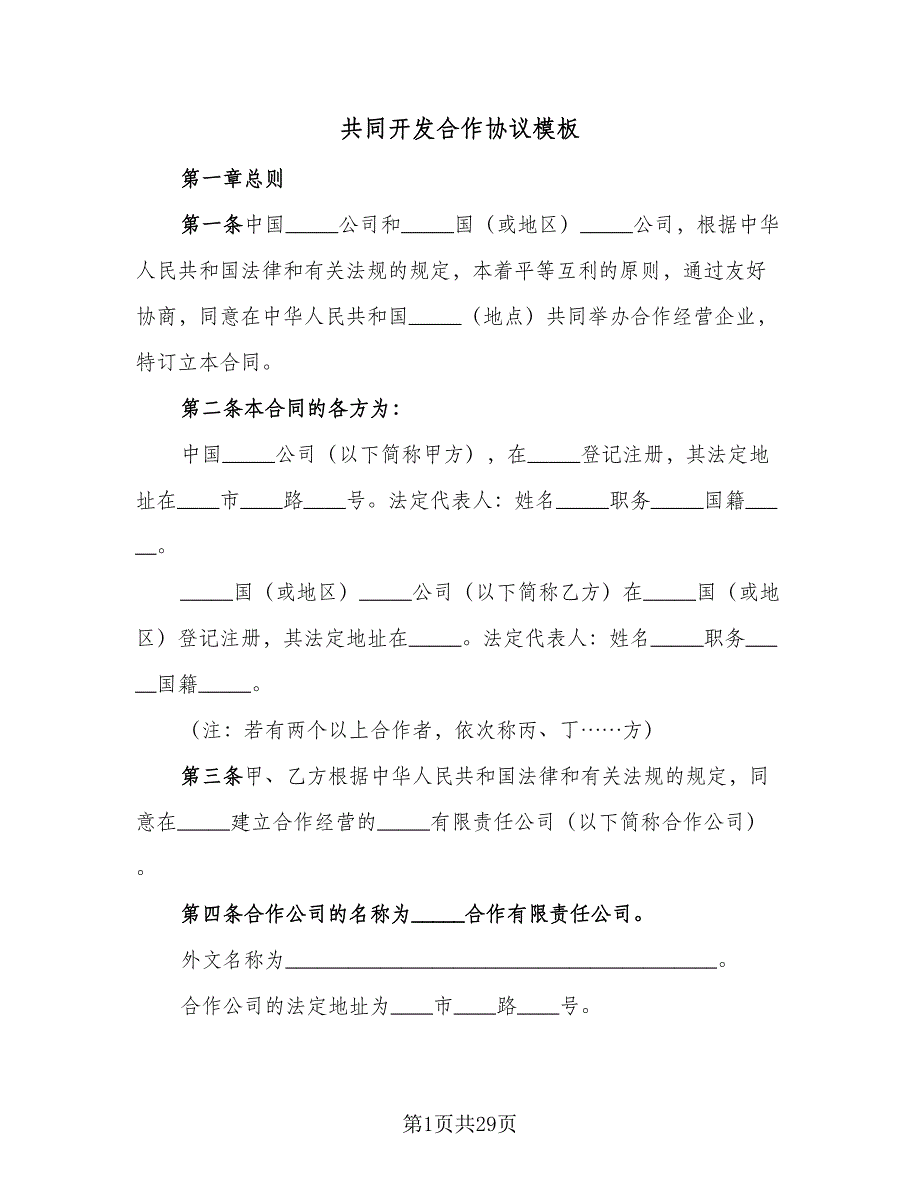 共同开发合作协议模板
第一章总则
第一条中国_____公司和_____国（或地区）_____公司，根据中华
人民共和国法律和有关法规的规定，本着平等互利的原则，通过友好
协商，同意在中华人民共和国_____（地点）共同举办合作经营企业，
特订立本合同。
第二条本合同的各方为：
中国_____公司（以下简称甲方），在_____登记注册，其法定地
址在____市____路____号。法定代表人：姓名_____职务_____国籍___
__。
_____国（或地区）_____公司（以下简称乙方）在_____国（或地
区）登记注册，其法定地址在_____。法定代表人：姓名_____职务___
__国籍_____。
（注：若有两个以上合作者，依次称丙、丁……方）
第三条甲、乙方根据中华人民共和国法律和有关法规的规定，同
意在_____建立合作经营的_____有限责任公司（以下简称合作公司）
。
第四条合作公司的名称为_____合作有限责任公司。
外文名称为_________________________________________。
合作公司的法定地址为____市____路____号。
第1页共29页